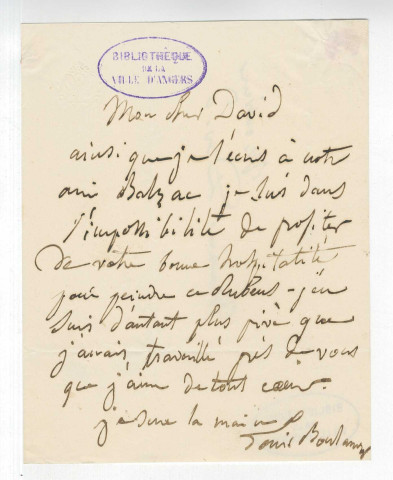 BIBLIOTHÈQUE
DE LA
VILLE D'ANGERS
Mon cher David
ainsi que je l'écris à notre
ami Balzac je suis dans
l'impossibilité de profiter
de votre bonne hospitalité
pour peindre ce - j'en
suis d'autant plus privé que
j'aurais travaillé près de vous
que j'aime de tout cœur.
je serre la main
Louis Boulanger